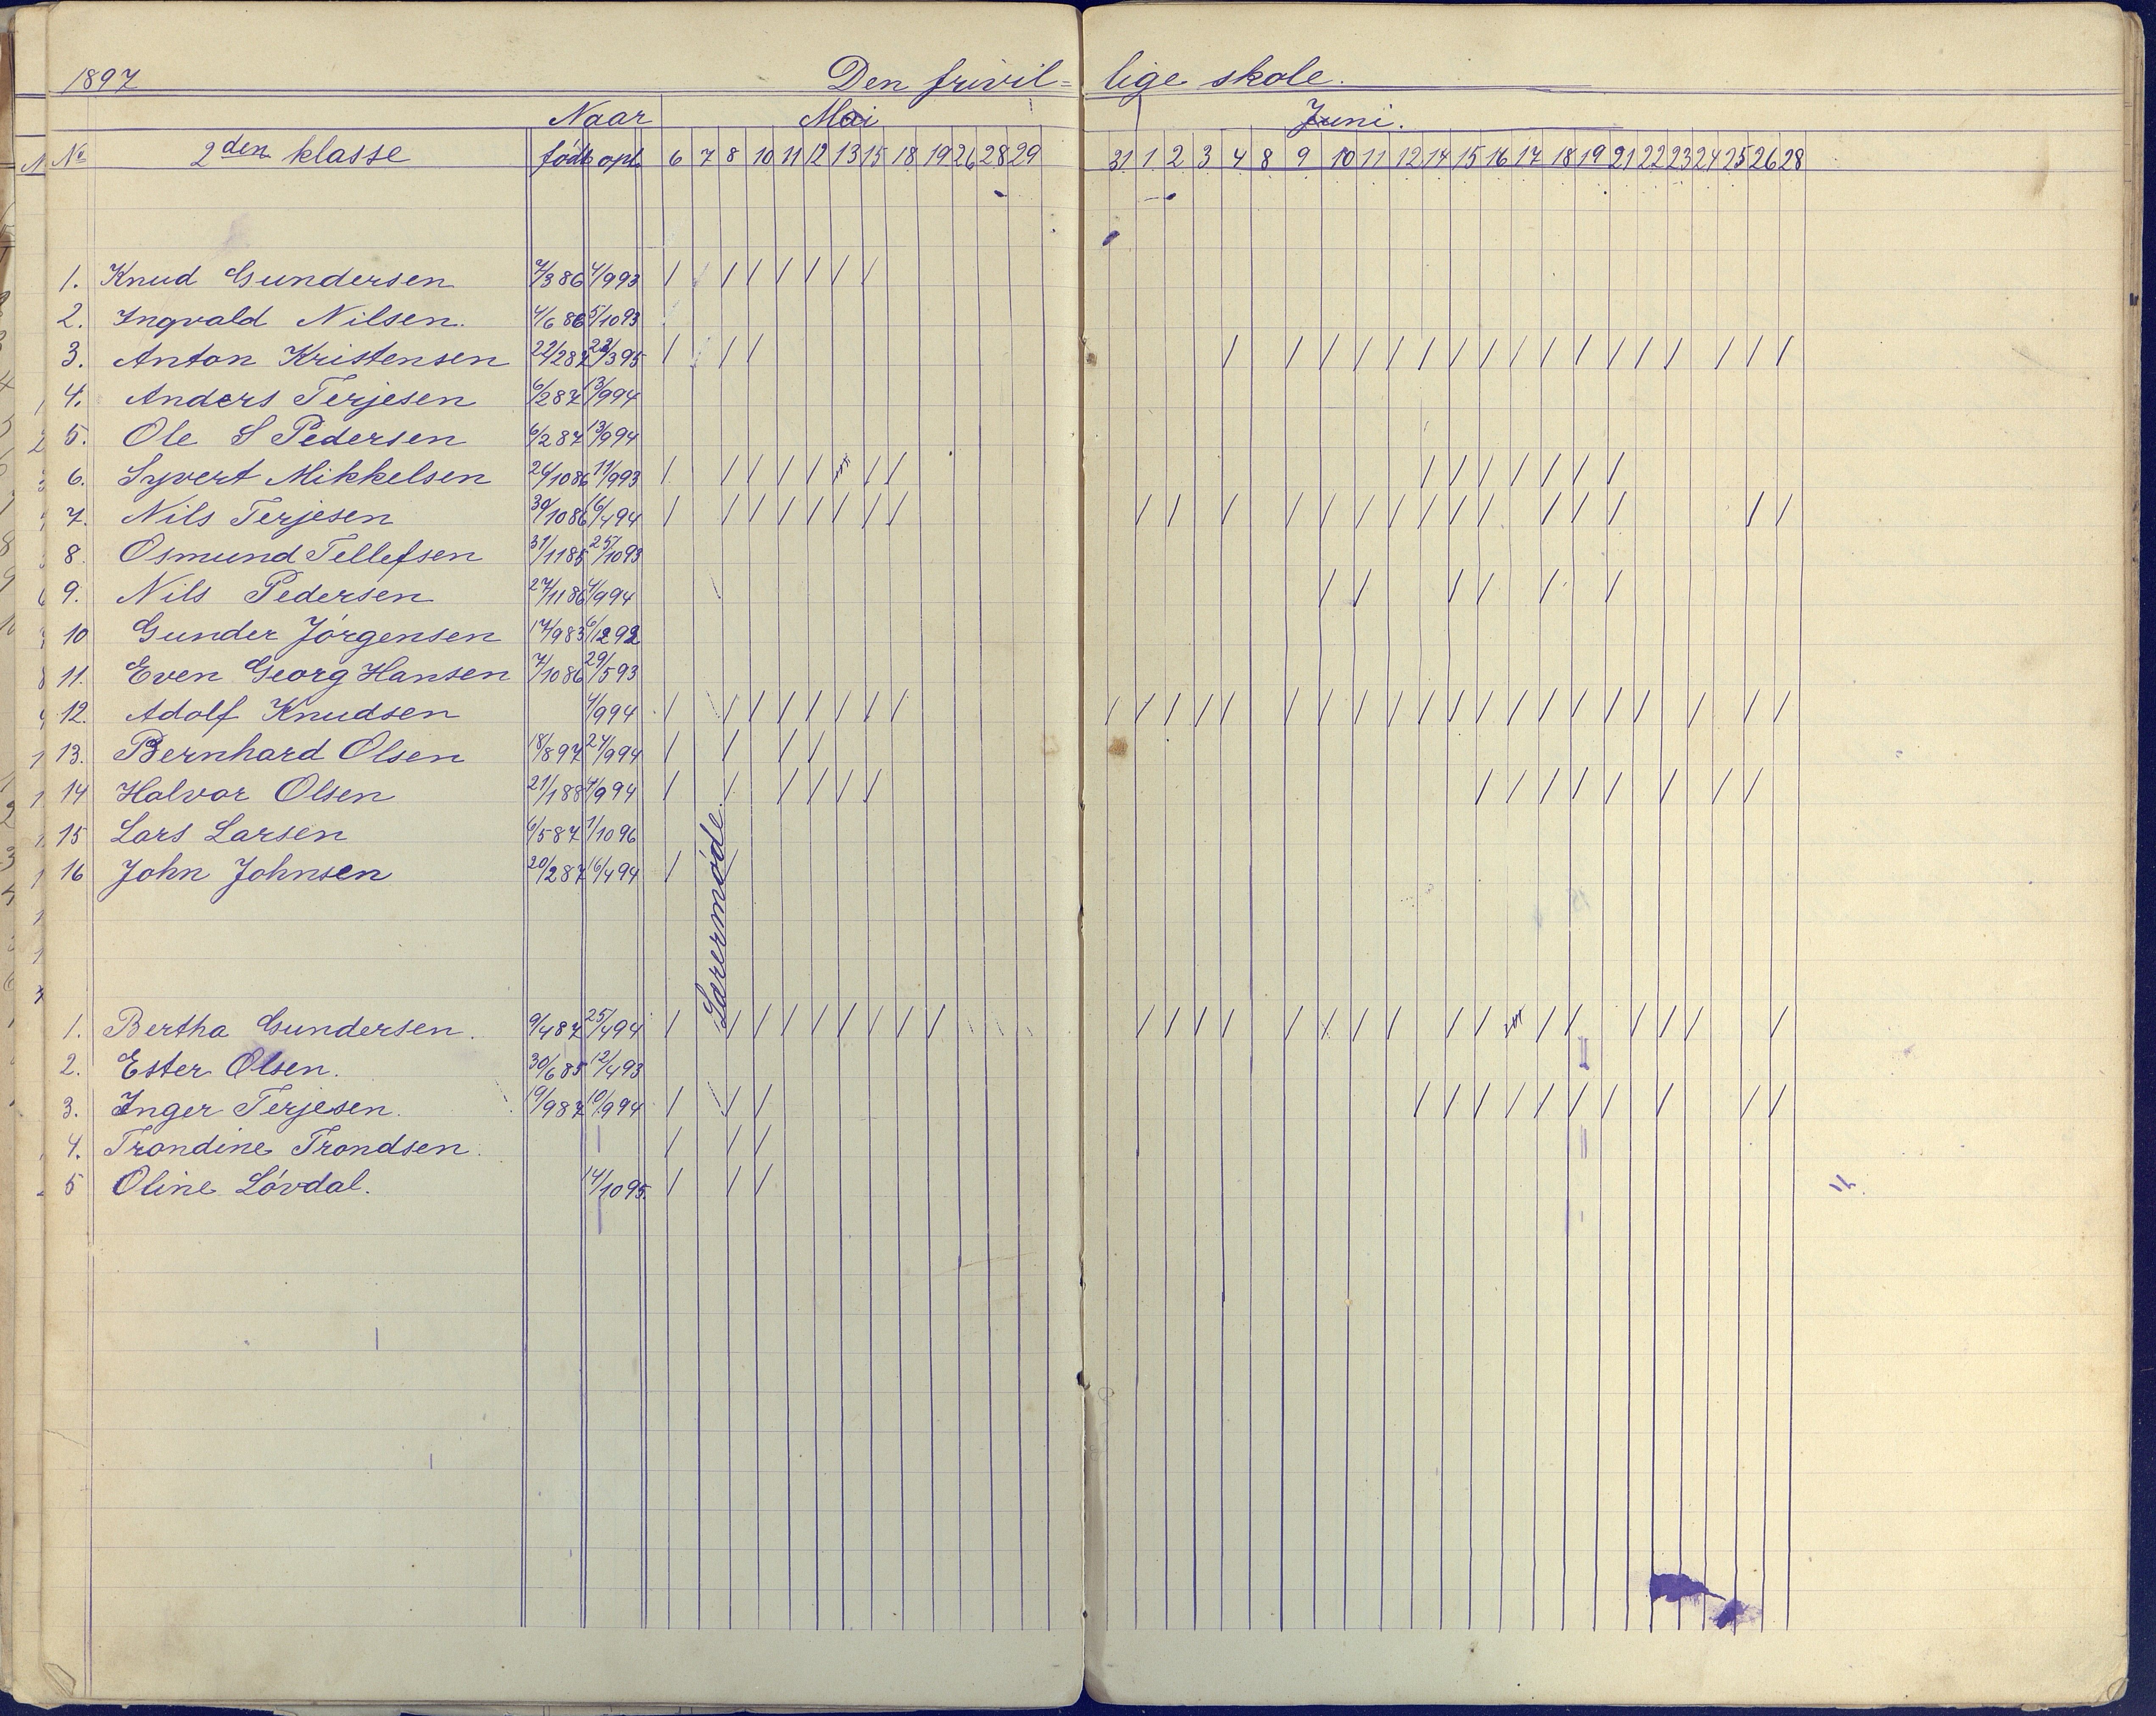 1897 Den frivil= lige skole.
Naar Mai Juni.
No 2den klasse födt opt 6 7 8 10 11 12 13 15 18 19 26 28 29 31 1 2 3 4 8 9 10 11 12 14 15 16 17 18 19 21 22 23 24 25 26 28
1. Knud Gundersen 7/3 86 4/9 93 / / / / / / /
2. Ingvald Nilsen. 4/6 86 5/10 93
3. Anton Kristensen 22/2 87 22/3 95 / / / / / / / / / / / / / / / / / / / /
4. Anders Terjesen 6/2 87 13/9 94
5. Ole S Pedersen 6/2 87 13/9 94
6. Syvert Mikkelsen 26/10 86 11/9 93 / / / / / / / / / / / / / /
7. Nils Terjesen 30/10 86 16/4 94 / / / / / / / / / / / / / / / / / / / / / / /
8. Osmund Tellefsen 31/11 85 25/10 93
9. Nils Pedersen 27/11 86 4/9 94 / / / / / /
10 Gunder Jörgensen 17/9 83 6/12 92
11. Even Georg Hansen 7/10 86 29/5 93
12. Adolf Knudsen 4/9 94 / / / / / / / / / / / / / / / / / / / / / / / / / / / /
13. Bernhard Olsen 18/8 97 27/9 94 / / / /
14 Halvor Olsen 21/1 88 4/9 94 / / / / / / / / / / / / / /
15 Lars Larsen 6/5 87 1/10 96
16 John Johnsen 20/2 87 16/4 94 / /
Lærermöde.
1. Bertha Gundersen. 9/4 87 25/4 94 / / / / / / / / / / / / / / / / / / / / / / / / /
2. Ester Olsen. 30/6 85 12/4 93
3. Inger Terjesen. 19/9 87 10/9 94 / / / / / / / / / / / / /
4. Trondine Trondsen. / / /
5 Oline Lövdal. 14/10 95. / / /